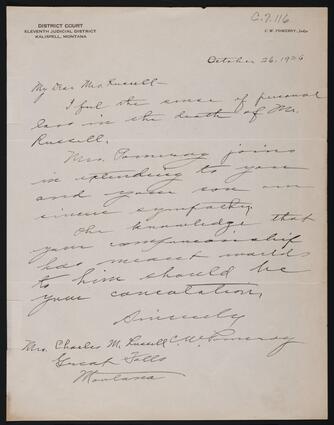 C.7.116
DISTRICT COURT
ELEVENTH JUDICIAL DISTRICT
KALISPELL, MONTANA
C. W. POMEROY, Judge
October 26, 1926
My Dear Mrs Russell-
I feel the sense of personal
loss in the death of Mr.
Russell.
Mrs. Pomeroy joins
in extending to you
and your son our
sincere sympathy.
The knowledge that
your companionship
has meant worlds
to him should be
your consolation.
Sincerely
C.W. Pomeroy
Mrs. Charles M. Russell
Great Falls
Montana